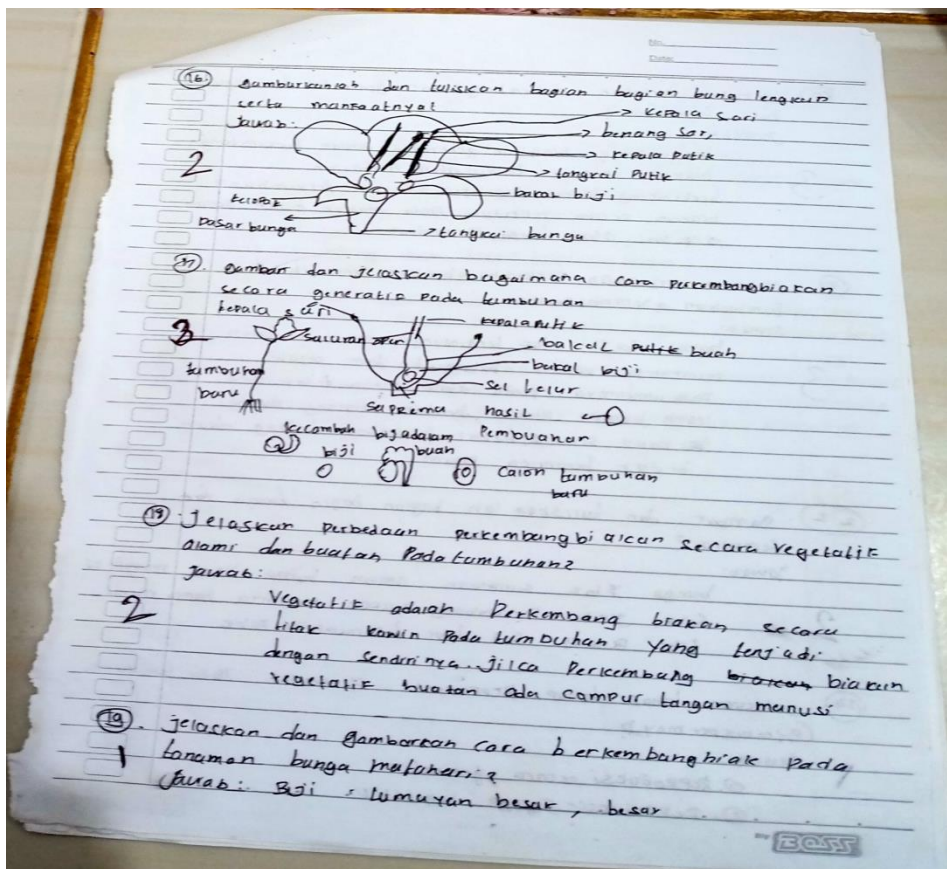 No.
Date:
16. Gambarkanlah dan tuliskan bagian bagian bung lengkap
serta manfaatnya!
Jawab:
2
kepala sari
benang sari
kepala putik
tangkai putik
bakal biji
kelopak
Dasar bunga
tangkai bunga
Gambar dan jelaskan bagaimana cara perkembangbiakan
secara generatif pada tumbuhan
kepala sari
kepala putik
3
saluran
bakal putik buah
bakal biji
tumbuhan
baru
sel telur
hasil
Pembuahan
kecambah
biji
buah
calon tumbuhan
baru
Jelaskan perbedaan perkembangbiakan secara vegetatif
alami dan buatan Pada tumbuhan?
Jawab:
2
Vegetatif adalah Perkembang biakan secara
titak kawin pada tumbuhan yang terjadi
dengan sendirinya. Jika Perkembang biakan biakan
vegetatif buatan ada campur tangan manusi
19. jelaskan dan gambarkan cara berkembangbiak pada
1
tanaman bunga matahari?
Jawab: Biji : lumayan besar, besar
BOSS